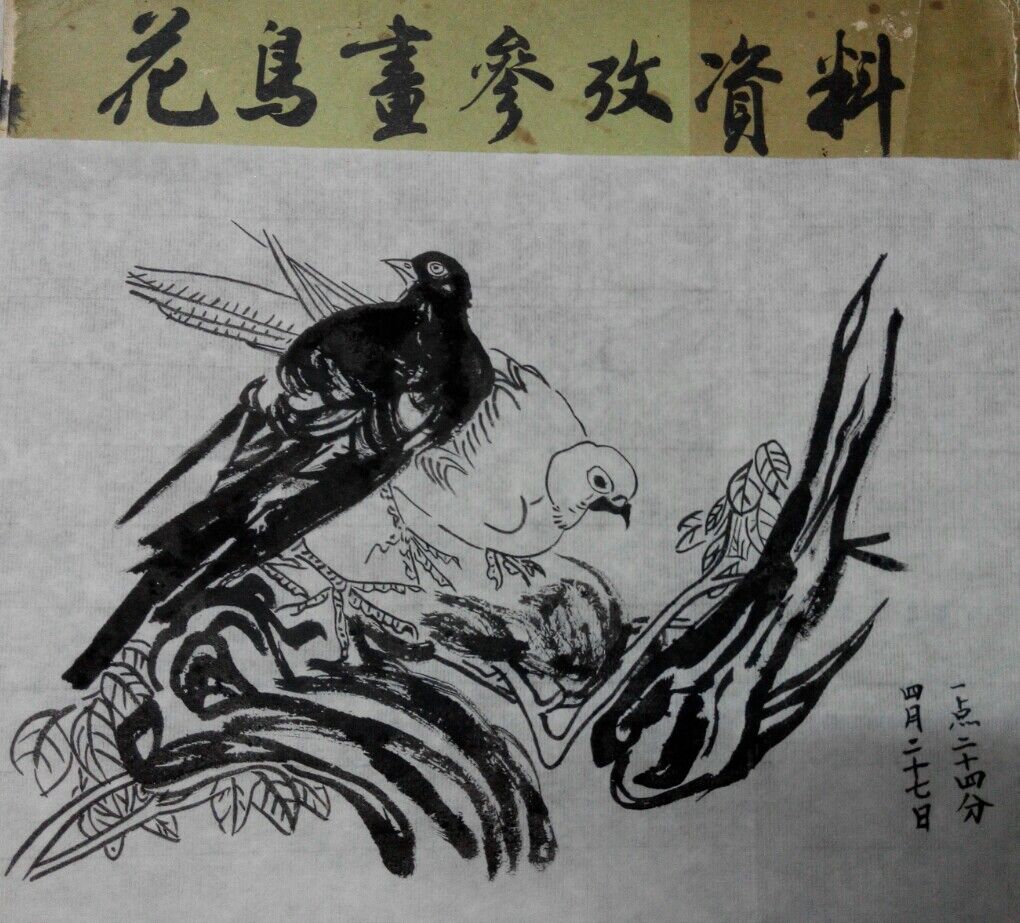 花鳥畫參攷資料
一点二十四分
四月二十七日